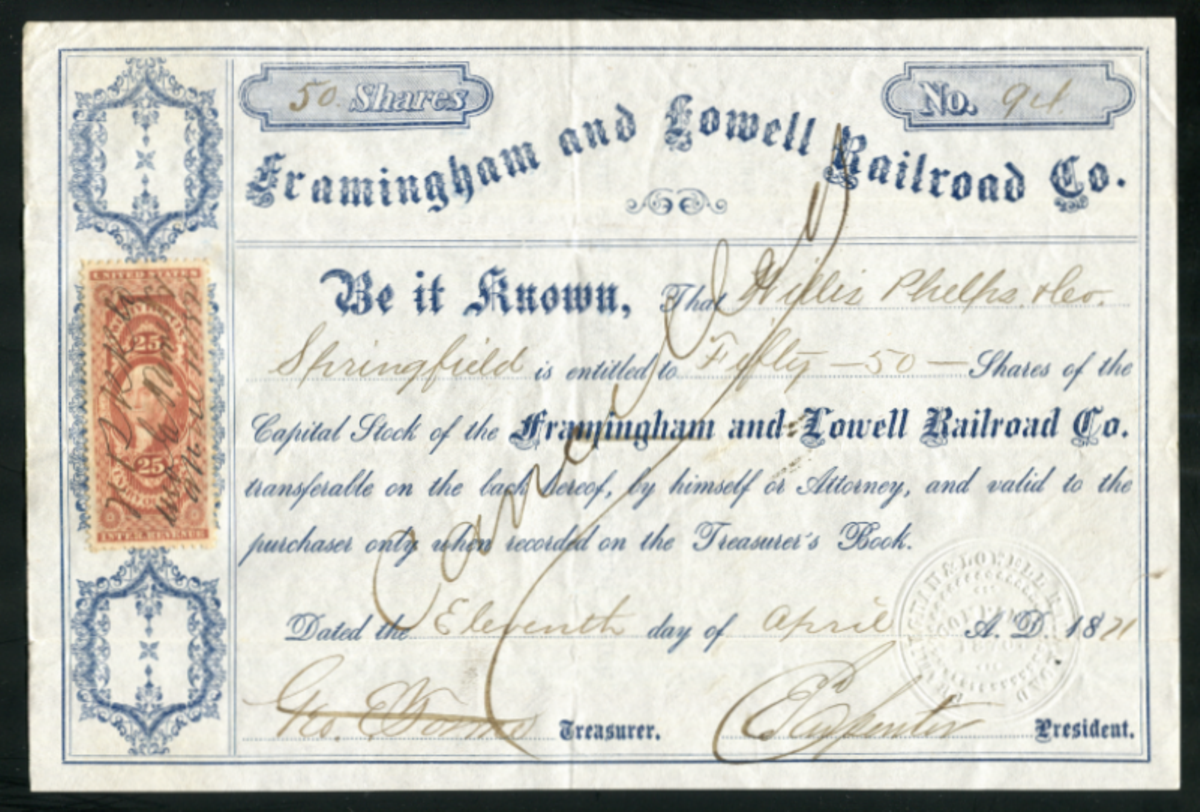 50 Shares
No. 94
Framingham and Lowell Railroad Co.
Be it Known, That Willis Phelps & Co.
Springfield is entitled to Fifty — 50 — Shares of the
Capital Stock of the Framingham and Lowell Railroad Co.
transferable on the back hereof, by himself or Attorney, and valid to the
purchaser only when recorded on the Treasurer's Book.
Dated the Eleventh day of April A. D. 1871
Geo. E. Treasurer. E Carpenter President.
Cancelled
UNITED STATES
25
25
INTER. REVENUE
& LOWELL
1870